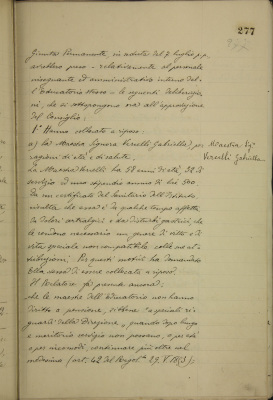 277
Giunta Permanente, in seduta del 7 luglio p.p.
avrebbe preso - relativamente al personale
insegnante ed amministrativo interno del-
l'Educatorio stesso - le seguenti deliberazio-
ni, che si sottopongono ora all'approvazione
del Consiglio:
1° Hanno collocato a riposo:
a) la Maestra Signora Vercelli Gabriella, per
ragioni di età e di salute.
Maestra Sig.
Vercelli Gabriella
La Maestra Vercelli ha 58 anni di età, 32 di
servizio ed uno stipendio annuo di Lire 500
Da un certificato del Sanitario dell'Istituto
risulta che essa è da qualche tempo affetta
da dolori e da disturbi gastrici, che
le rendono necessario un genere di vitto e di
vita speciale non compatibile colle sue at-
tribuzioni. Per questi motivi ha domandato
Ella stessa di essere collocata a riposo.
Il Relatore fa presente ancora:
che le maestre dell'Educatorio non hanno
diritto a pensione, "a speciali ri-
guardi della Direzione, quando dopo lungo
e meritorio servizio non possono, o per età
o per incomodi, continuare più oltre nel
medesimo" (art. 42 del Regol.